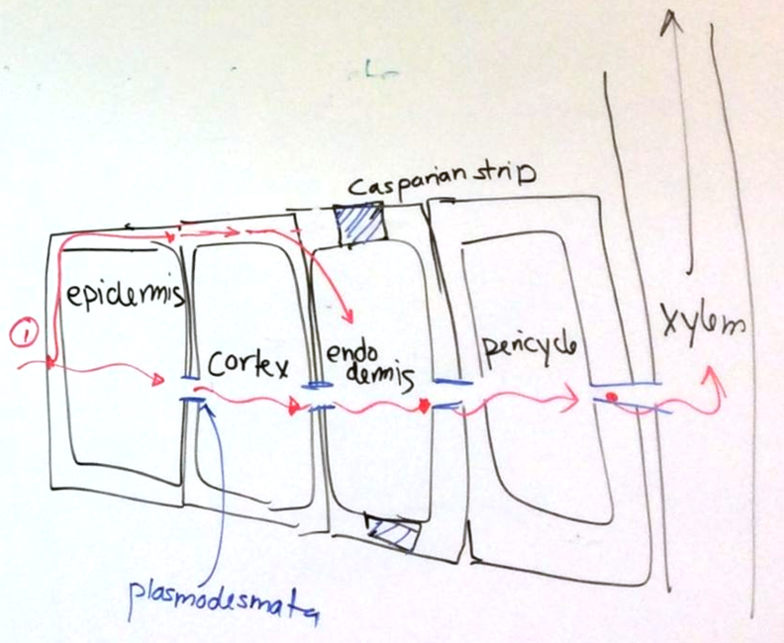 Casparian strip
epidermis
①
cortex
endo
dermis
pericycle
xylem
plasmodesmata